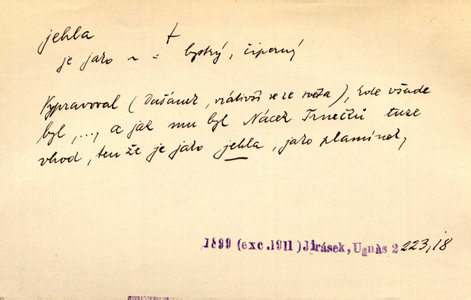 jehla †
je jako ~ = bystrý, čiperný
Vypravoval (Dušánek, vrátivší se ze světa), kde všude
byl, ..., a jak mu byl Nácek Trnečků tuze
vhod, ten že je jako jehla, jako plamínek,
1899 (exc. 1911) Jirásek, U nás 2 223, 18